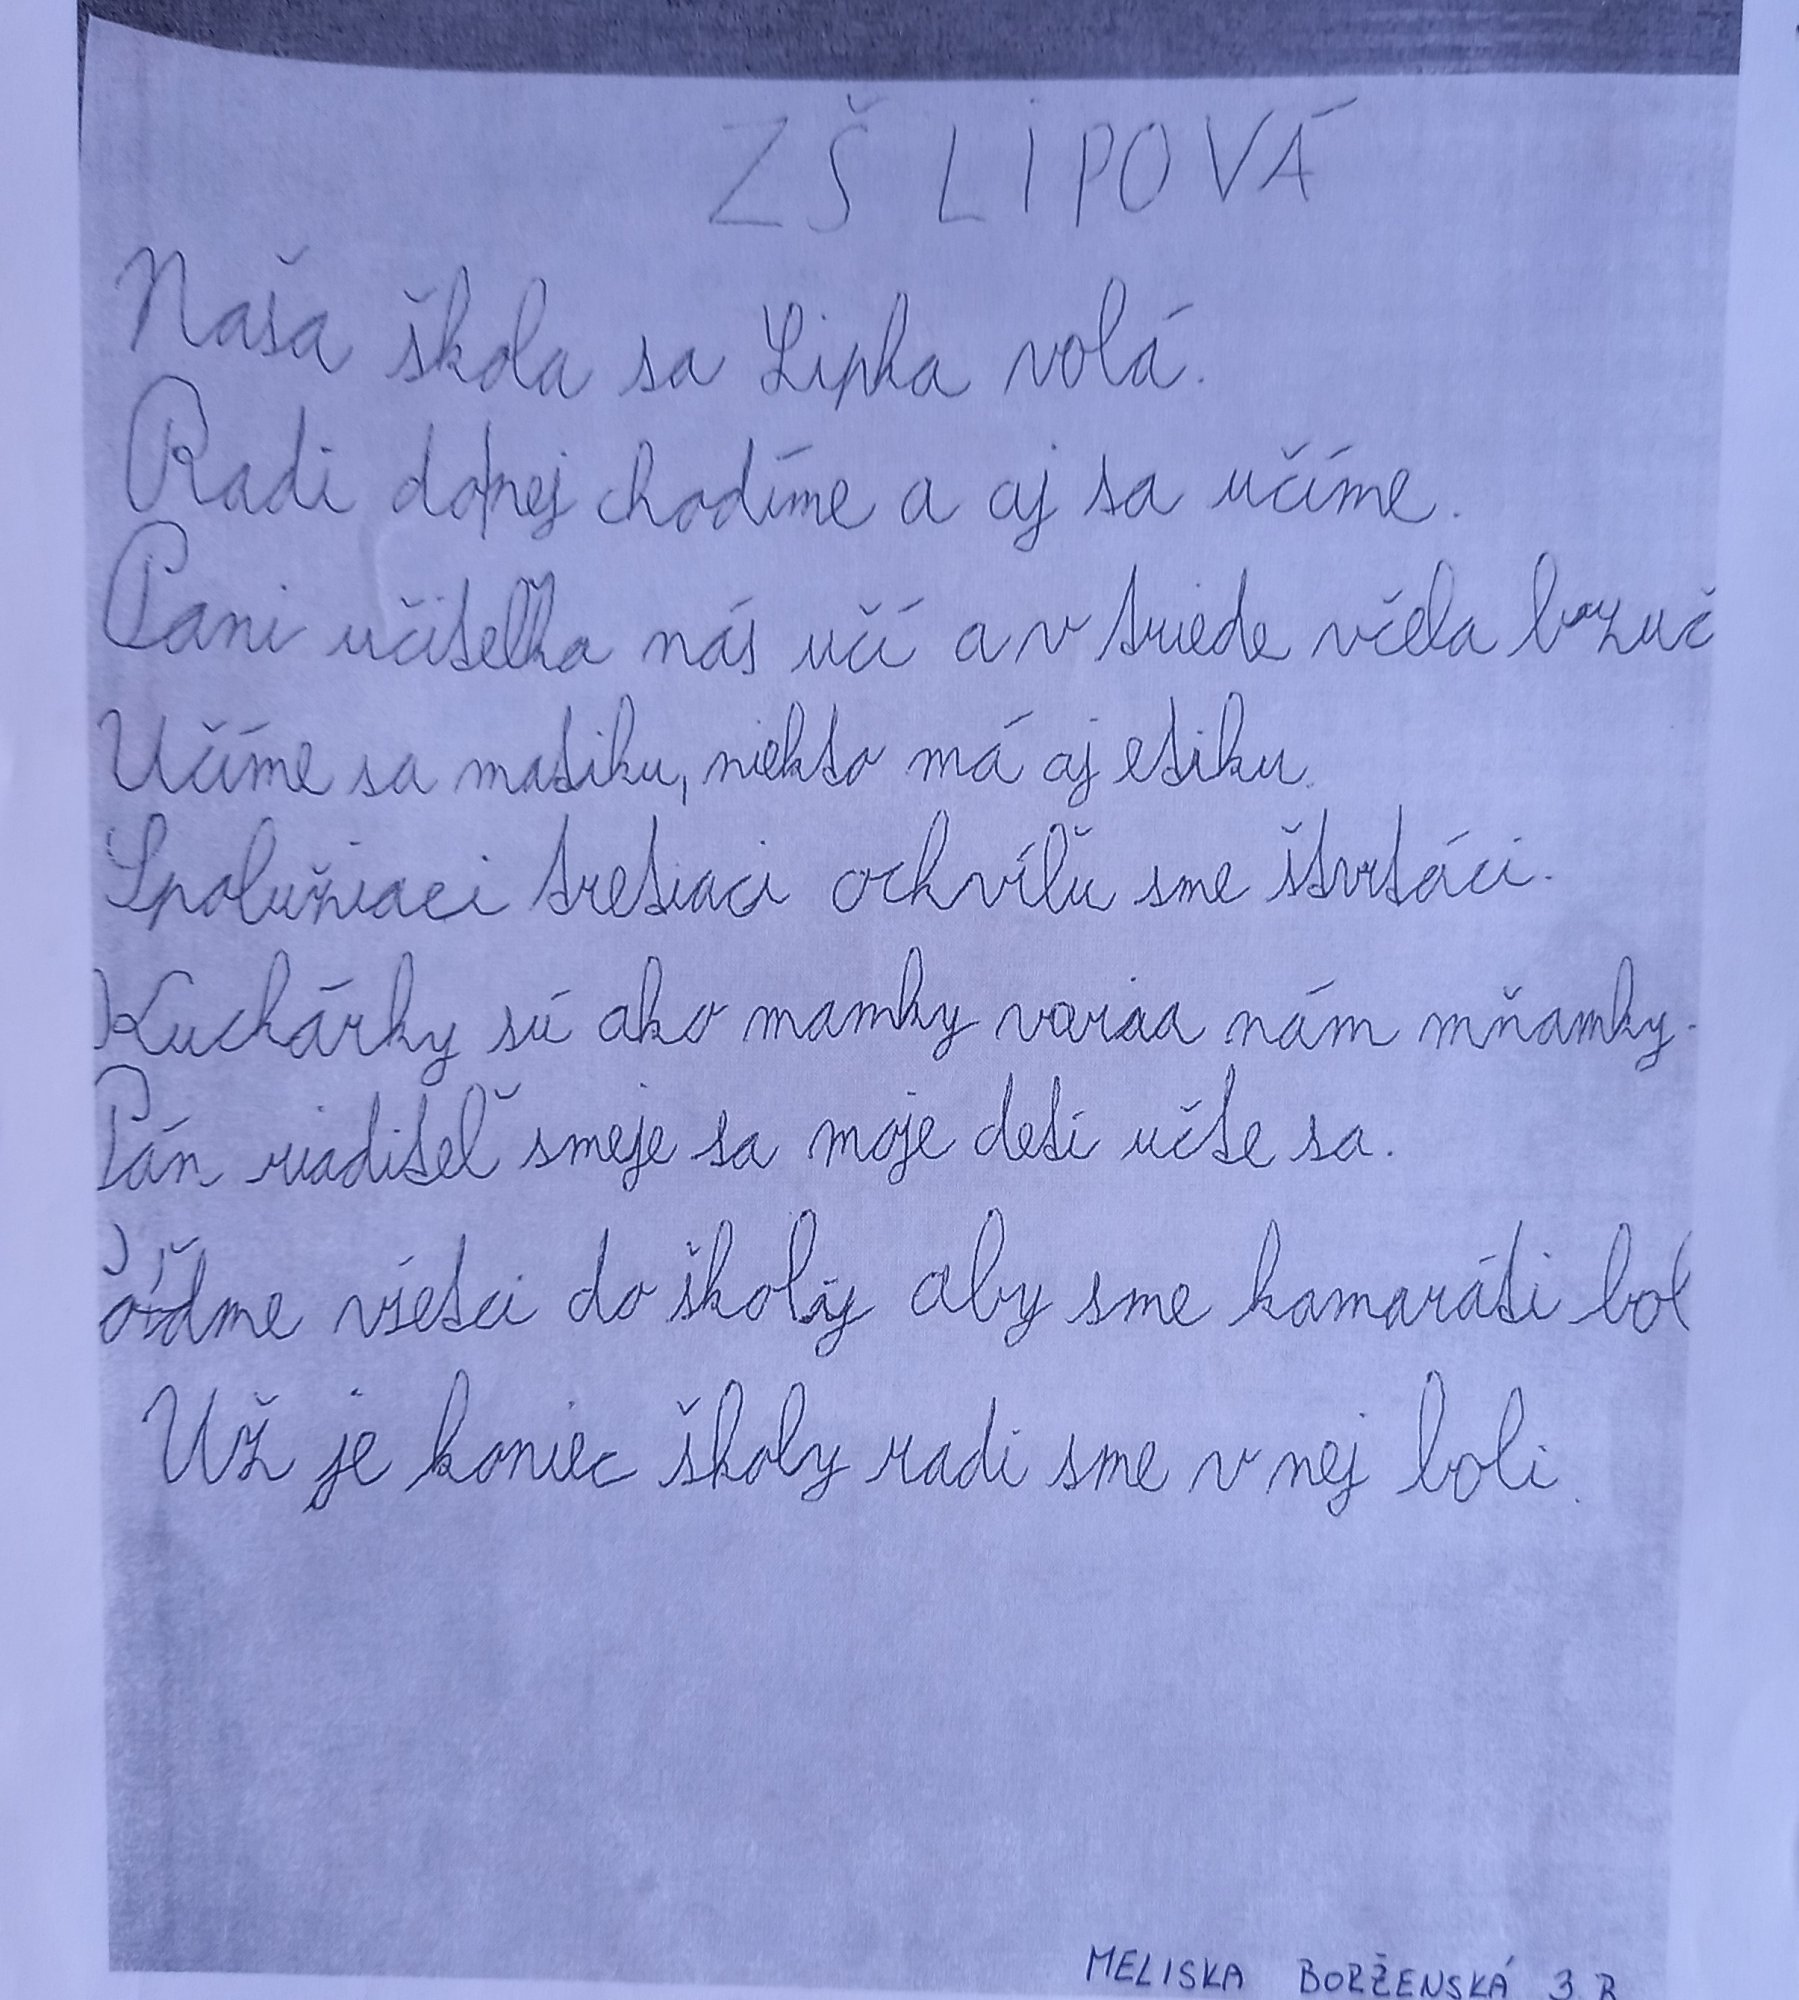 ZŠ LIPOVÁ
Naša škola sa Lipka volá.
Radi do nej chodíme a aj sa učíme.
Pani učiteľka nás učí a v triede včela bzuč
Učíme sa matiku, niekto má aj etiku.
Spolužiaci tretiaci ochvíľu sme štvrtáci.
Kuchárky sú ako mamky varia nám mňamky.
Pán riaditeľ smeje sa moje deti učte sa.
Poďme všetci do školy aby sme kamaráti bol
Už je koniec školy radi sme v nej boli.
MELISKA BORŽENSKÁ 3. B